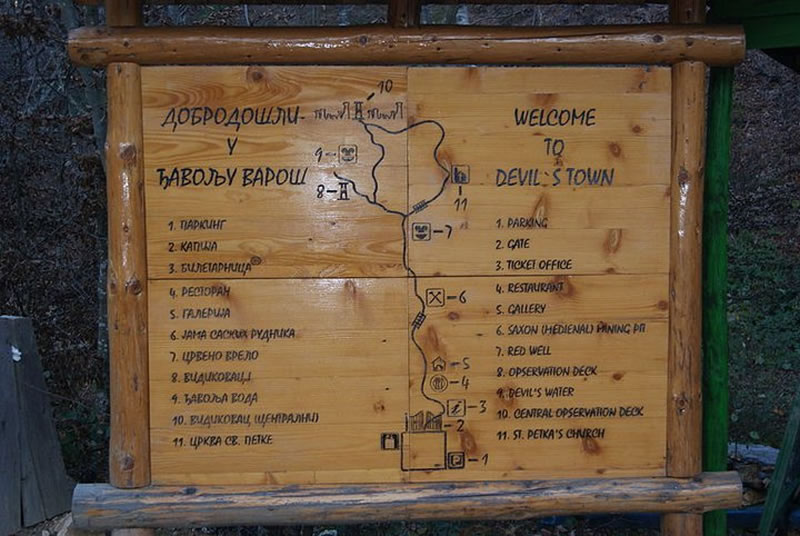 ДОБРОДОШЛИ
У
ЂАВОЉУ ВАРОШ
1. ПАРКИНГ
2. КАПИЈА
3. БИЛЕТАРНИЦА
4. РЕСТОРАН
5. ГАЛЕРИЈА
6. ЈАМА САСКИХ РУДНИКА
7. ЦРВЕНО ВРЕЛО
8. ВИДИКОВАЦ
9. ЂАВОЉА ВОДА
10. ВИДИКОВАЦ (ЦЕНТРАЛНИ)
11. ЦРКВА СВ. ПЕТКЕ
10
9
8
11
7
6
5
4
i
3
2
P
1
WELCOME
TO
DEVIL`S TOWN
1. PARKING
2. GATE
3. TICKET OFFICE
4. RESTAURANT
5. GALLERY
6. SAXON (MEDIENAL) MINING PIT
7. RED WELL
8. OPSERVATION DECK
9. DEVIL'S WATER
10. CENTRAL OPSERVATION DECK
11. ST. PETKA'S CHURCH